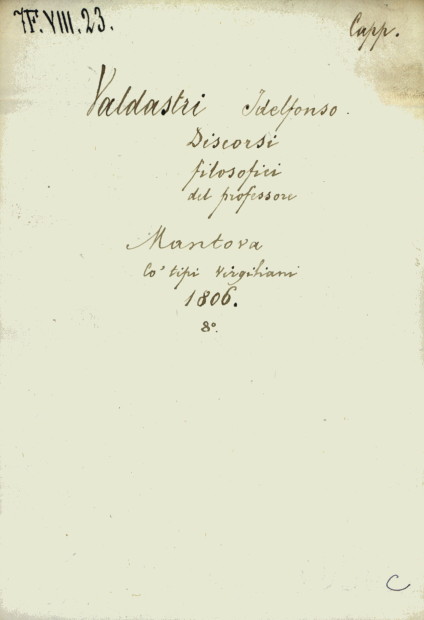 7F.VIII.23.
Capp.
Valdastri Idelfonso.
Discorsi
filosofici
del professore
Mantova
Co' tipi Virgiliani
1806.
8º.
C